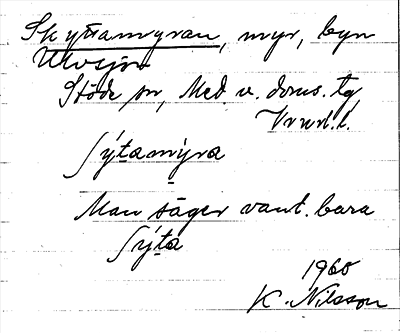 Skyttamyran, myr, byn
Ulvsjön
Stöde sn, Med. v. doms. tg,
Vrnrl. l.
ʃýtamýra
Man säger vanl. bara
ʃýta
1960
K. Nilsson